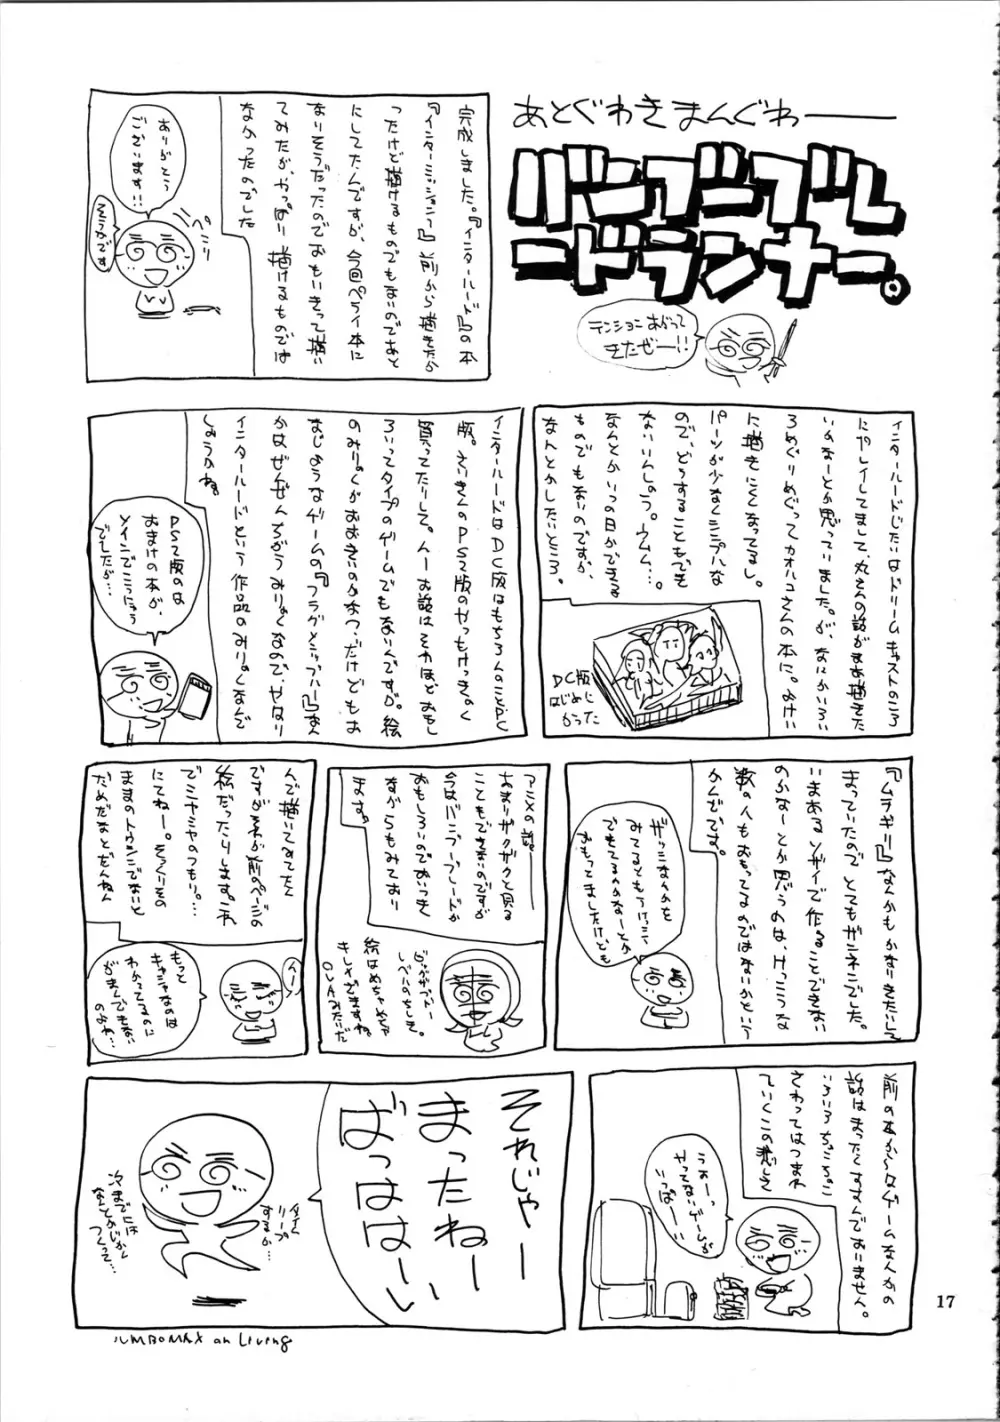 あとぐわきまんぐわー
バンブーブレ
ードランナー。
テンションあがって
きたぜー!!
完成しました。『インターハード』の本
『インターミッション』前から描きたか
ったけど描けるものでもないのであと
にしてたんですが、今回ペライ本に
なりそうだったのでおもいきって描い
てみたが、やっぱり描けるものでは
なかったのでした
ありがとう
ございます!!
そうかです
ペこり
インターハードじたいはドリームキャストのころ
にプレイしてまして、丸さんの話がまあ描きた
いかなーとか思っていました。が、なにかいろい
ろめぐりめぐってカオハコさんの本に。おけい
に描きにくくなってるし。
パーツが少なくシンプルな
ので、どうすることもでき
ないしんのう。ウムム…。
なんとかいつの日かできる
ものでもないのですが、
なんとかしたいところ。
DC版
はじめに
かった
インターハードはDC版はもちろんのことPC
版。さいきんのPS2版のやつもけっきょく
買ってたりして。んーお話はそれほどおもし
ろいってタイプのゲームでもないんですが。絵
のみりょくがおおきいのかなっ・だけどもお
なじようなゲームの『フラグメンツハー』なん
かはぜんぜんちがうみりょくなので、やはり
インターハードという作品のみりょくなんで
しょうかね。
PS2版のは
おまけの本が、
メインでこうにゅう
でしたが…
『ムラギリ』なんかもかなりきたいして
まっていたのでとてもザンネンでした。
いまあるソザイで作ることできない
のかなーとか思うのは、けっこうな
数の人もおもってるのではないかという
かんじです。
ギッシリなんかも
みてるともうけっこう
できてるんかなーとか
おもってましたけども
アニメの話ー
あまりザクザクと見る
こともできないのですが
今はバンブーブレードが
おもしろいのでおいっかけ
ながらもみており
ます。
絵はめちゃめちゃ
きれいすぎますね。
OVAみたいだ
んで描いてみてたく
ですがそれが前のページの
絵だったりします。これ
でミヤミヤのつもり…
にてねー。そっくりその
ままのトウシンでないと
だめだなとぜんねん
んー
もっと
キャシャなのは
わかってるのに
がまんできない
のよね…
前の本からはゲームなんかの
話はまったくすすんでおりません。
いろいろちょこちょこ
さわってはつまれ
ていくこの悲しさ
うおーっ
やってないゲームが
いっぱーい!!
それじゃー
まったねー
ばっはは―い
タイム
リープ
するか…
次までには
なんとかいがく
つくって…
JUMBOMAX an Living
17